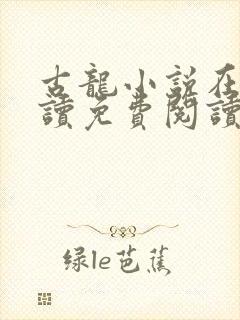 古龍小說在
讀免費閱讀
绿le芭蕉